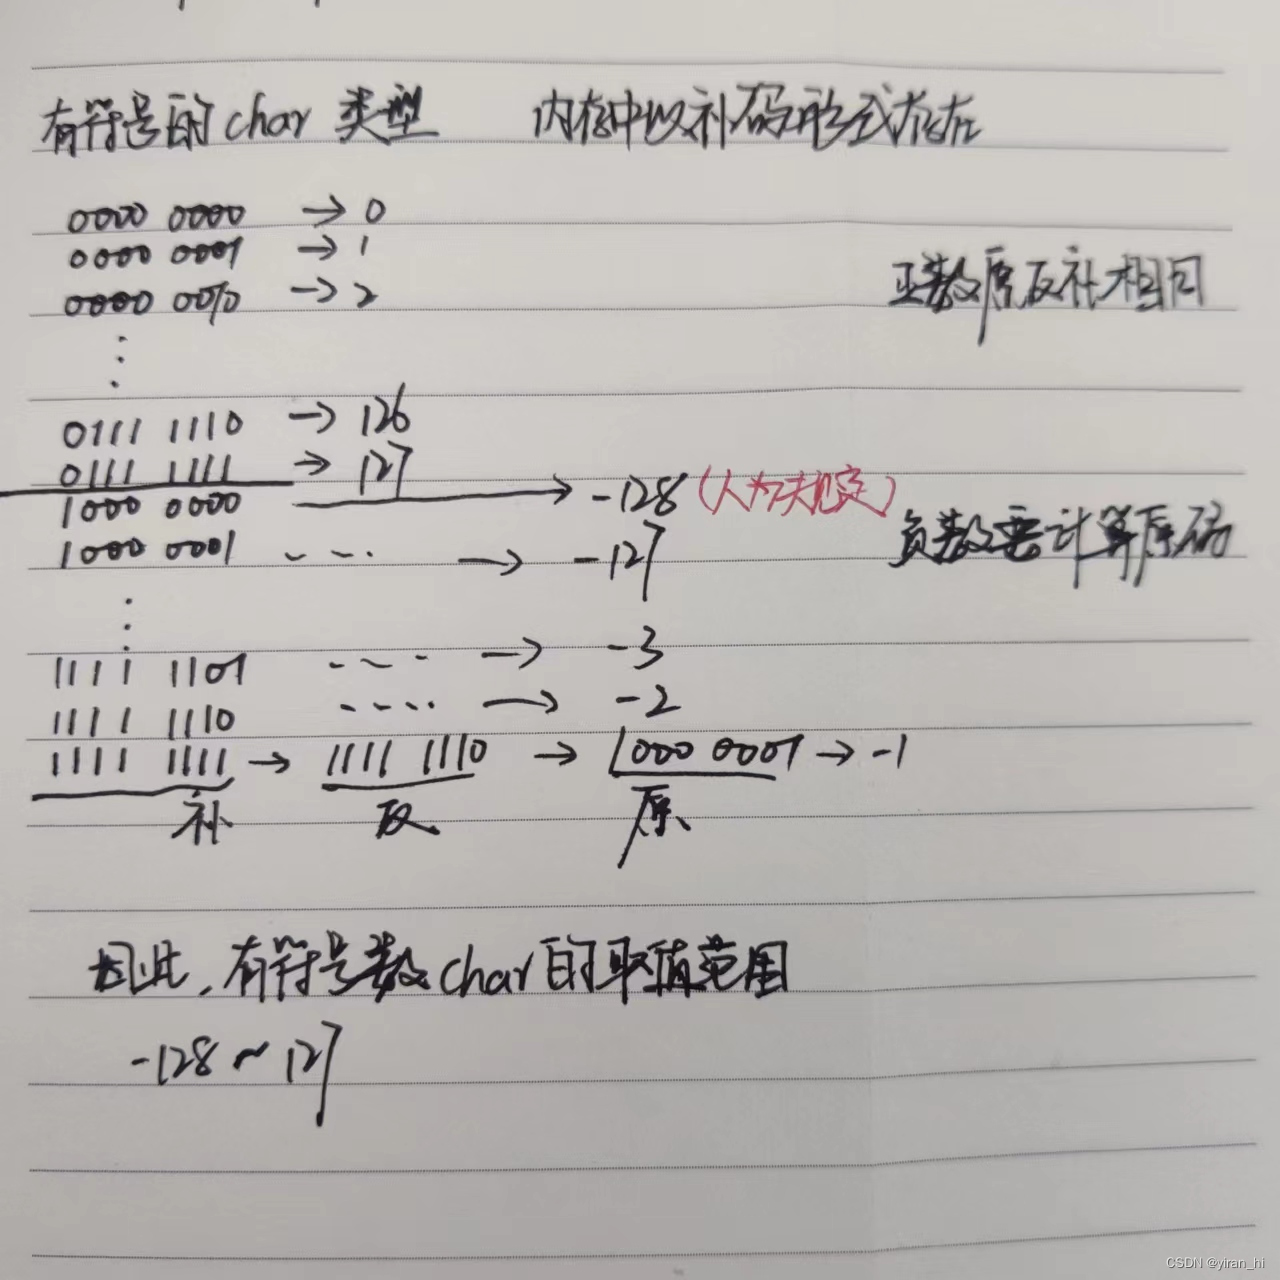 有符号的char 类型 内存中以补码形式存在
0000 0000 → 0
0000 0001 → 1
0000 0010 → 2
正数原反补相同
⋮
0111 1110 → 126
0111 1111 → 127
1000 0000 → -128 (人为规定)
1000 0001 ---- → -127
负数要计算原码
⋮
1111 1101 ---- → -3
1111 1110 ---- → -2
1111 1111 → 1111 1110 → 1000 0001 → -1
补 反 原
因此, 有符号数char的取值范围
-128 ~ 127
CSDN @yiran_hi